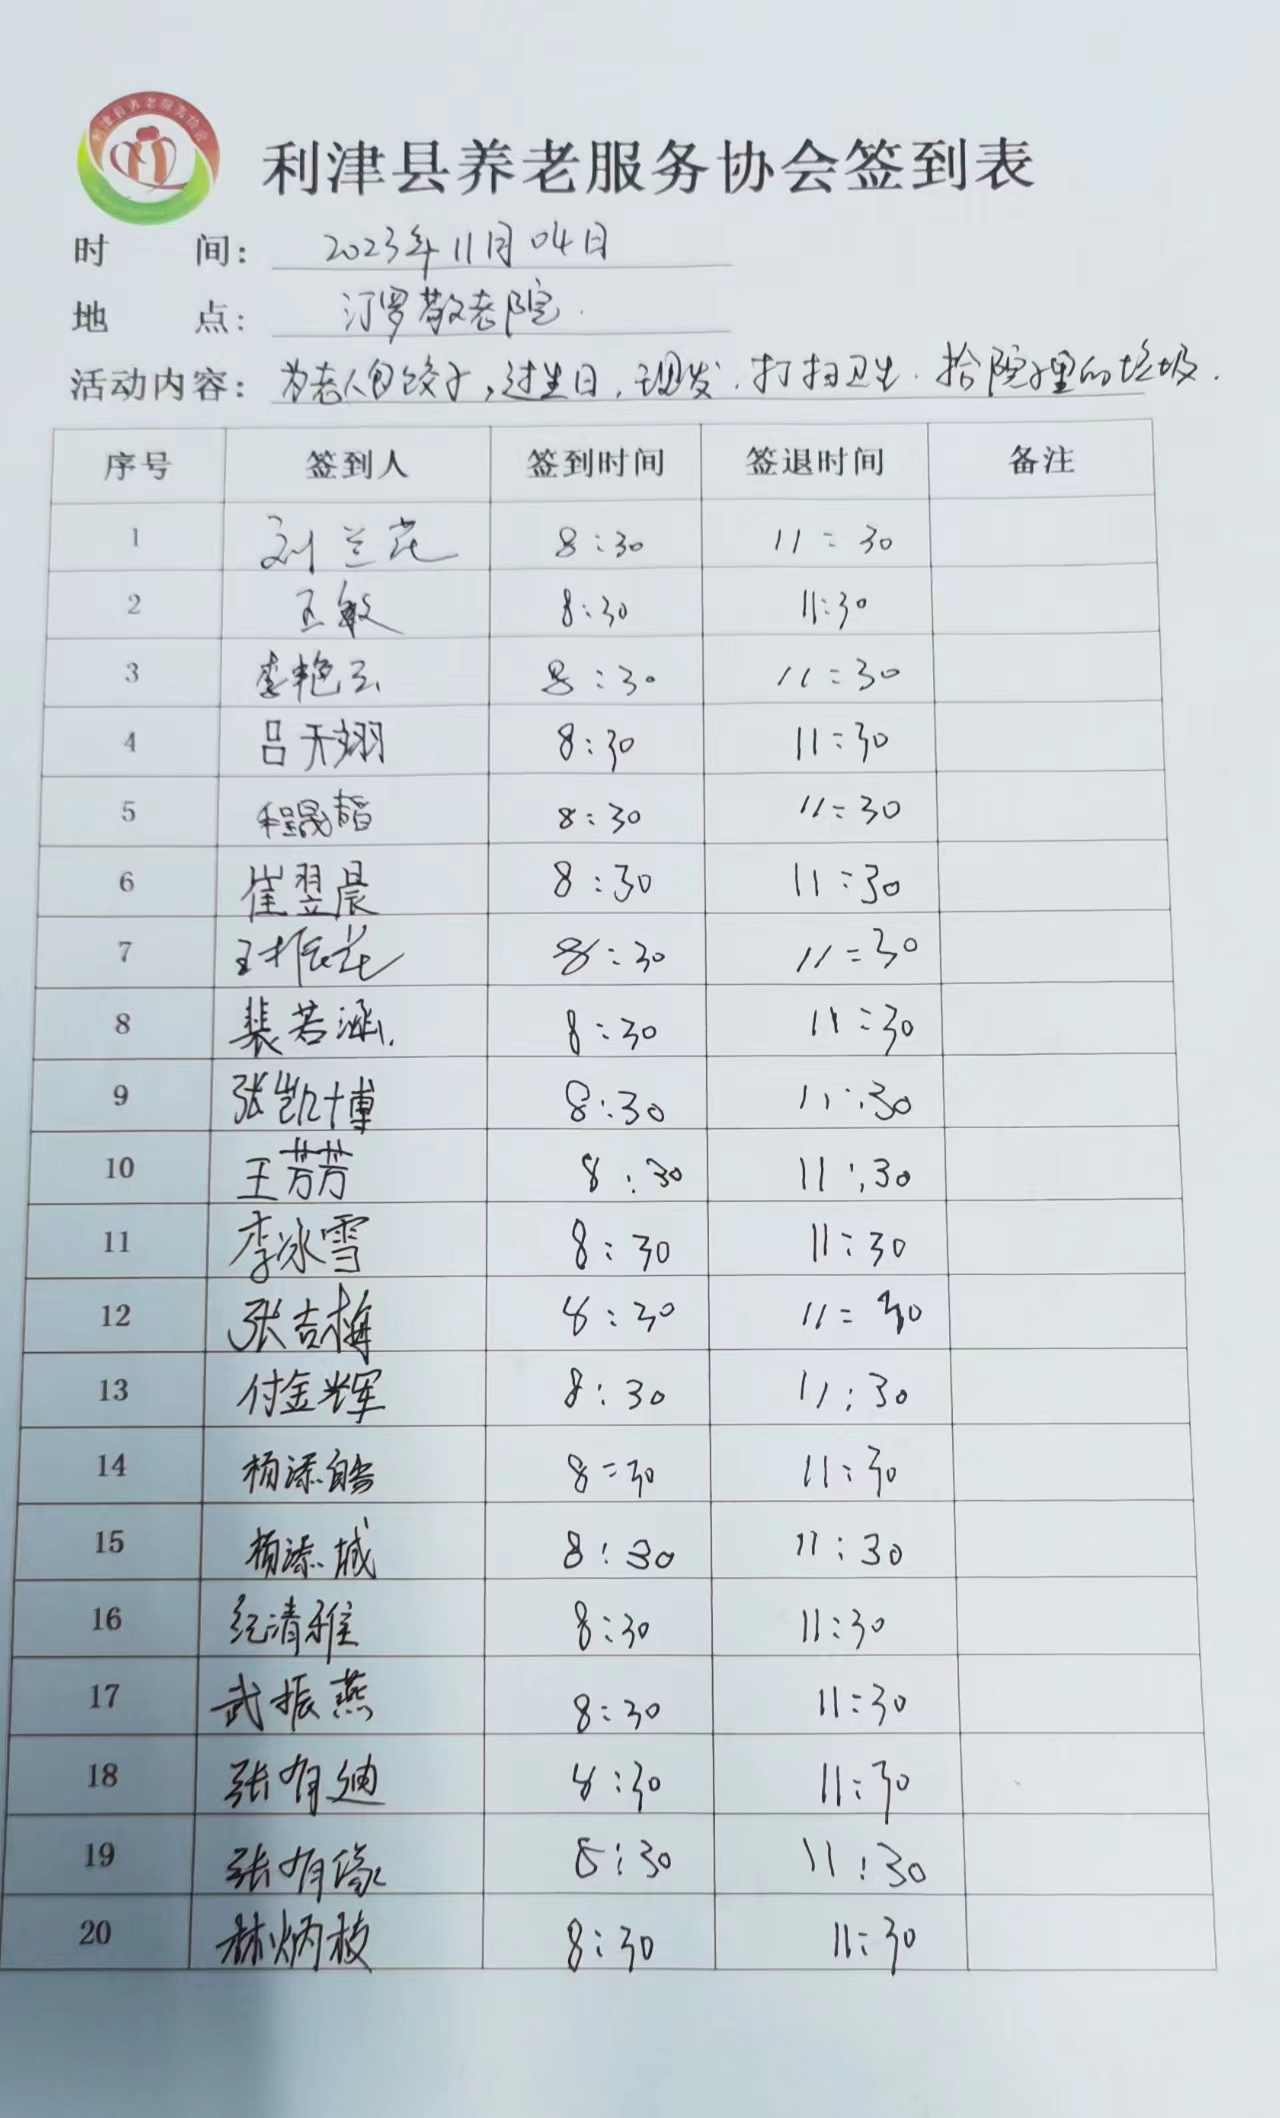 利津县养老服务协会
利津县养老服务协会签到表
时 间: 2023年11月04日
地 点: 汀罗敬老院.
活动内容: 为老人包饺子,过生日,理发.打扫卫生.拾院子里的垃圾.
序号 签到人 签到时间 签退时间 备注
1 刘兰花 8:30 11:30
2 王敏 8:30 11:30
3 李艳云 8:30 11:30
4 吕天翊 8:30 11:30
5 程晟韬 8:30 11:30
6 崔翌晨 8:30 11:30
7 王振花 8:30 11:30
8 裴若涵. 8:30 11:30
9 张凯博 8:30 11:30
10 王芳芳 8:30 11:30
11 李冰雪 8:30 11:30
12 张吉梅 8:30 11:30
13 付金辉 8:30 11:30
14 杨添皓 8:30 11:30
15 杨添城 8:30 11:30
16 纪清雅 8:30 11:30
17 武振燕 8:30 11:30
18 张有迪 8:30 11:30
19 张有缘 8:30 11:30
20 林炳枝 8:30 11:30